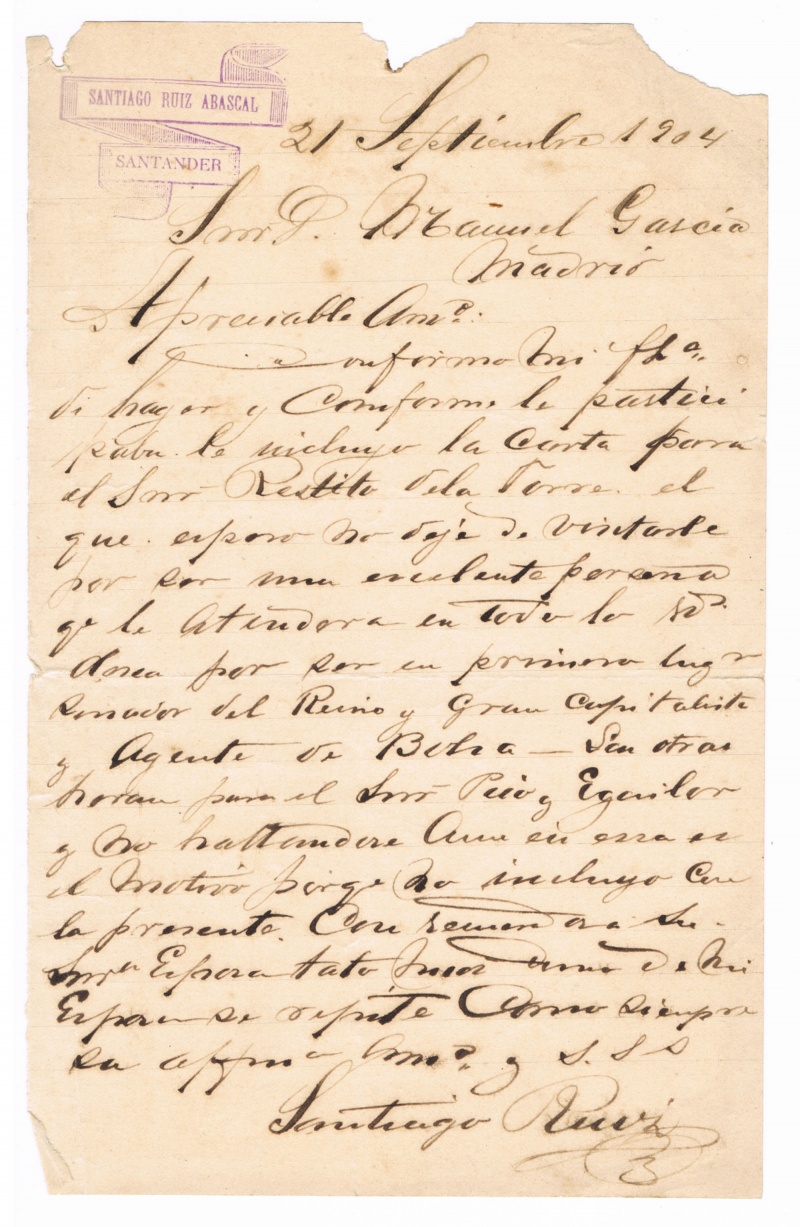 SANTIAGO RUIZ ABASCAL
SANTANDER
21 Septiembre 1904
Snr D. Manuel Garcia
Madrid
Apreciable Amo:
Conforme mi
de hayer y Comforme le partici
paba le incluyo la Carta para
el Snr Restito dela Torre. el
que espero no deje de visitarle
por ser una escelente persona
qe le Atendera en todo lo
desea por ser en primero lugr
senador del Reino y Gran Capitalista
y Agente de Bolsa — Las otras
heran para el Snr Pico y Eguilor
y no hallandose Aun en essa es
el Motivo porqe no incluyo Con
la presente. Con a su
Snra Esposa tato mios Como de mi
Esposa se repite Como siempre
su affmo Amo. y S. S S
Santiago Ruiz